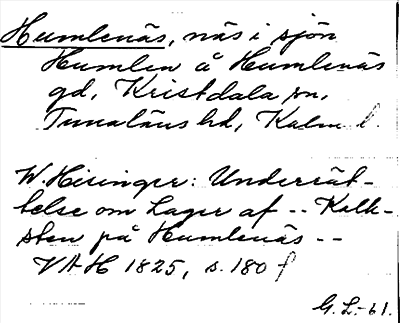 Humlenäs, näs i sjön
Humlen å Humlenäs
gd, Kristdala sn,
Tunaläns hd, Kalm. l.
W. Hisinger: Underrät-
telse om Lager af -- Kalk-
sten på Humlenäs --
VAH 1825, s. 180 f
G. L. -61.